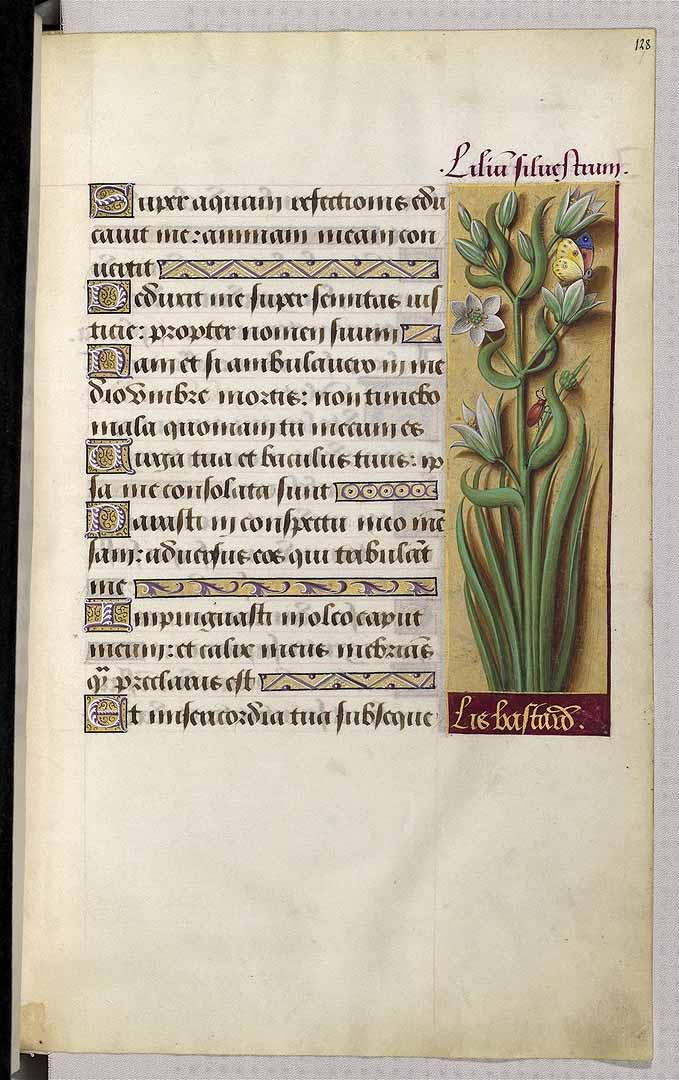 128
.Liliū siluestrum.
Super aquam refectionis edu
cauit me: animam meam con
uertit
Deduxit me super semitas ius
ticie: propter nomen suum
Nam et si ambulauero in me
dio vmbre mortis: non timebo
mala quoniam tu mecum es
Uirga tua et baculus tuus: ip
sa me consolata sunt
Parasti in conspectu meo mē
sam: aduersus eos qui tribulāt
me
Impinguasti in oleo caput
meum: et calix meus inebriās
q̄ preclarus est
Et misericordia tua subseque
Lis bastard.